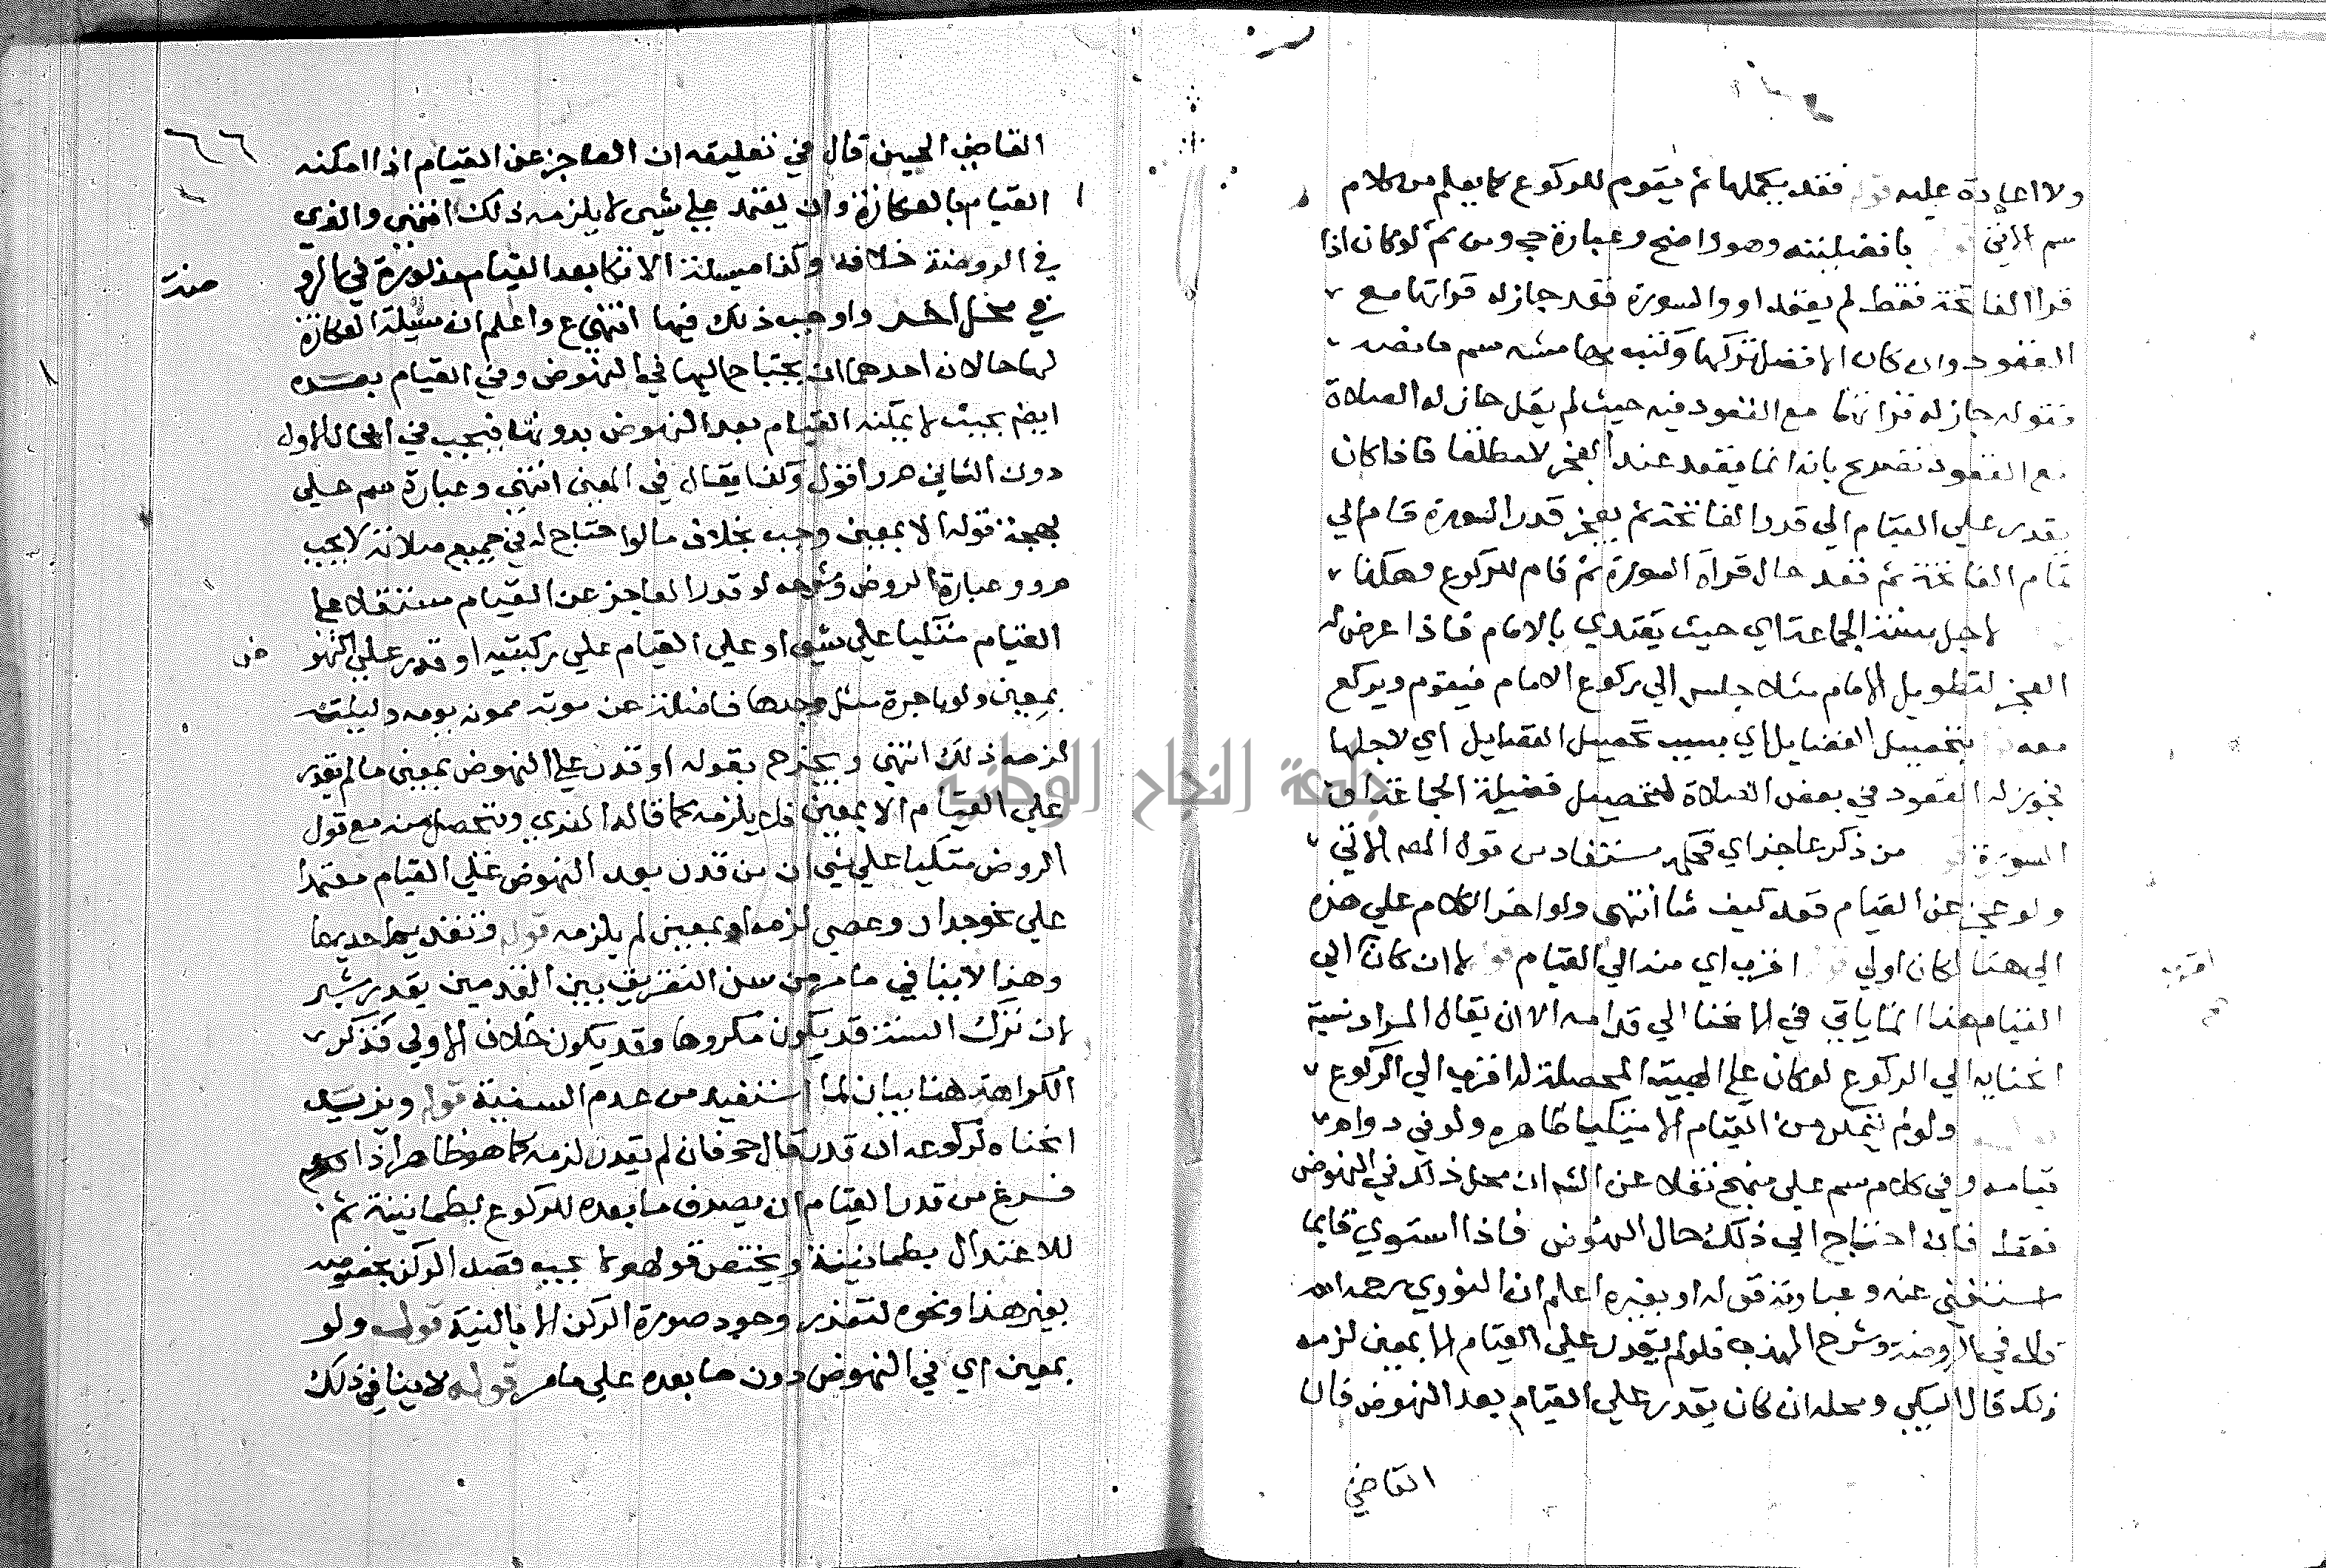 ولا اعادة عليه قوله فقد يكملها ثم يقوم للركوع كما يعلم من كلام
سم الاتي بافضليته وهو واضح وعبارة ح و س ثم لو كان اذا
قرا الفاتحة فقط لم يقعد او والسورة قعد جاز له قراتها مع
القعود وان كان الافضل تركها وكتب بهامشه سم ما نصه
قوله جاز له قراتها مع القعود فيه حيث لم يقل جاز له الصلاة
مع القعود تصريح بانه انما يقعد عند العجز لا مطلقا فاذا كان
يقدر علي القيام الي قدر الفاتحة ثم يعجز قدر السورة قام الي
تمام الفاتحة ثم قعد حال قراة السورة ثم قام للركوع وهكذا
لاجل سنة الجماعة اي حيث يقتدي بالامام فاذا عرض له
العجز لتطويل الامام مثلا جلس الي ركوع الامام فيقوم ويركع
معه بتحصيل الفضايل اي بسبب تحصيل الفضايل اي لاجلها
تجويز له القعود في بعض الصلاة لتحصيل فضيلة الجماعة او
السورة من ذكر عاجز اي فحكمه مستفاد من قول المص الاتي
ولو عجز عن القيام قعد كيف شا انتهى ولو اخر الكلام علي هذه
الي هنا لكان اولي قوله اقرب اي منه الي القيام قوله لان كان الي
اقرب
القيام هذا انما ياتي في الانحنا الي قدامه الا ان يقال المراد نسبة
انحنايه الي الركوع لو كان علي الهيئة المحصلة له اقرب الي الركوع
ولو لم يتمكن من القيام الا متكيا ظاهره ولو في دوام
قيامه وفي كلام سم علي منهج نقلا عن الش ان محل ذلك في النهوض
فقط فان احتاج الي ذلك حال النهوض فاذا استوي قايما
استغني عنه وعبارته قوله او بغيره اعلم ان النووي رحمه الله
قال في الروضة وشرح المهذب فلو لم يقدر علي القيام الا بمعين لزمه
ذلك قال السبكي ومحله ان كان يقدر علي القيام بعد النهوض فان
القاضي
٦٦
القاضي الحسين قال في تعليقه ان العاجز عن القيام اذا امكنه
القيام بالعكازة وان يعتمد علي شي لا يلزمه ذلك انتهي والذي
في الروضة خلافه وكذا مسئلة الاتكا بعد القيام مذكورة في الرو
ضة
في محل اخر واوجب ذلك فيها انتهي ع واعلم ان مسئلة العكازة
لها حالان احدهما ان يحتاج اليها في النهوض وفي القيام بعده
ايض بحيث لا يمكنه القيام بعد النهوض بدونها فيجب في الحال الاول
دون الثاني م ر اقول وكذا يقال في المعين انتهي وعبارة سم علي
بهجة قوله الا بمعين وجب بخلاف ما لو احتاج له في جميع صلاته لا يجب
م ر وعبارة الروض وشرحه لو قدر العاجز عن القيام مستقلا علي
القيام متكيا علي شي او علي القيام علي ركبتيه او قدر علي النهو
ض
بمعين ولو باجرة مثل وجدها فاضلة عن موته ممونه يومه وليلته
لزمه ذلك انتهي ويخرج بقوله او قدر علي النهوض بمعين ما لم يقدر
علي القيام الا بمعين فلا يلزمه كما قاله الغزي وتحصل منه مع قول
الروض متكيا علي شي ان من قدر بعد النهوض علي القيام معتمدا
علي نحو جدار وعصي لزمه او بمعين لم يلزمه قوله وتقديم احديهما
وهذا لا ينافي ما مر من سن التفريق بين القدمين بقدر شبر
لان ترك السنة قد يكون مكروها وقد يكون خلاف الاولي فذكر
الكراهة هنا بيان لما استفيد من عدم السنية قوله ويزيد
انحناه لركوعه ان قدر قال حج فان لم يقدر لزمه كما هو ظاهر اذا
فرغ من قدر القيام ان يصرف ما بعده للركوع بطمانينة ثم
للاعتدال بطمانينة ويختص قولهم لا يجب قصد الركن بخصوصه
بغير هذا ونحوه لتعذر وجود صورة الركن الا بالنية قوله ولو
بمعين اي في النهوض دون ما بعده علي ما مر قوله لا ينافي ذلك
جامعة النجاح الوطنية